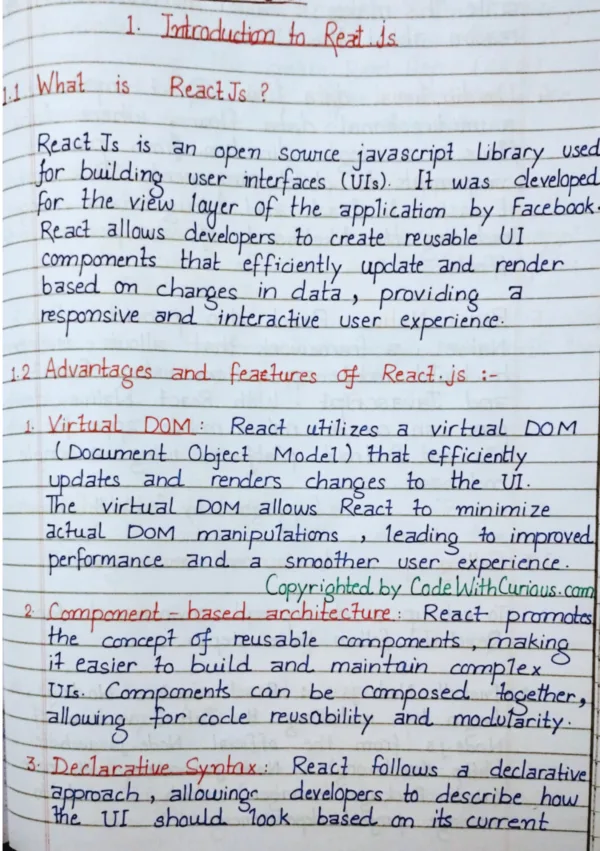 1. Introduction to React.js
1.1 What is React Js ?
React Js is an open source javascript Library used
for building user interfaces (UIs). It was developed
for the view layer of the application by Facebook.
React allows developers to create reusable UI
components that efficiently update and render
based on changes in data, providing a
responsive and interactive user experience.
1.2 Advantages and features of React.js :-
1. Virtual DOM : React utilizes a virtual DOM
(Document Object Model) that efficiently
updates and renders changes to the UI.
The virtual DOM allows React to minimize
actual DOM manipulations , leading to improved
performance and a smoother user experience.
Copyrighted by CodeWithCurious.com
2. Component-based architecture : React promotes
the concept of reusable components, making
it easier to build and maintain complex
UIs. Components can be composed together,
allowing for code reusability and modularity.
3. Declarative Syntax : React follows a declarative
approach, allowing developers to describe how
the UI should look based on its current